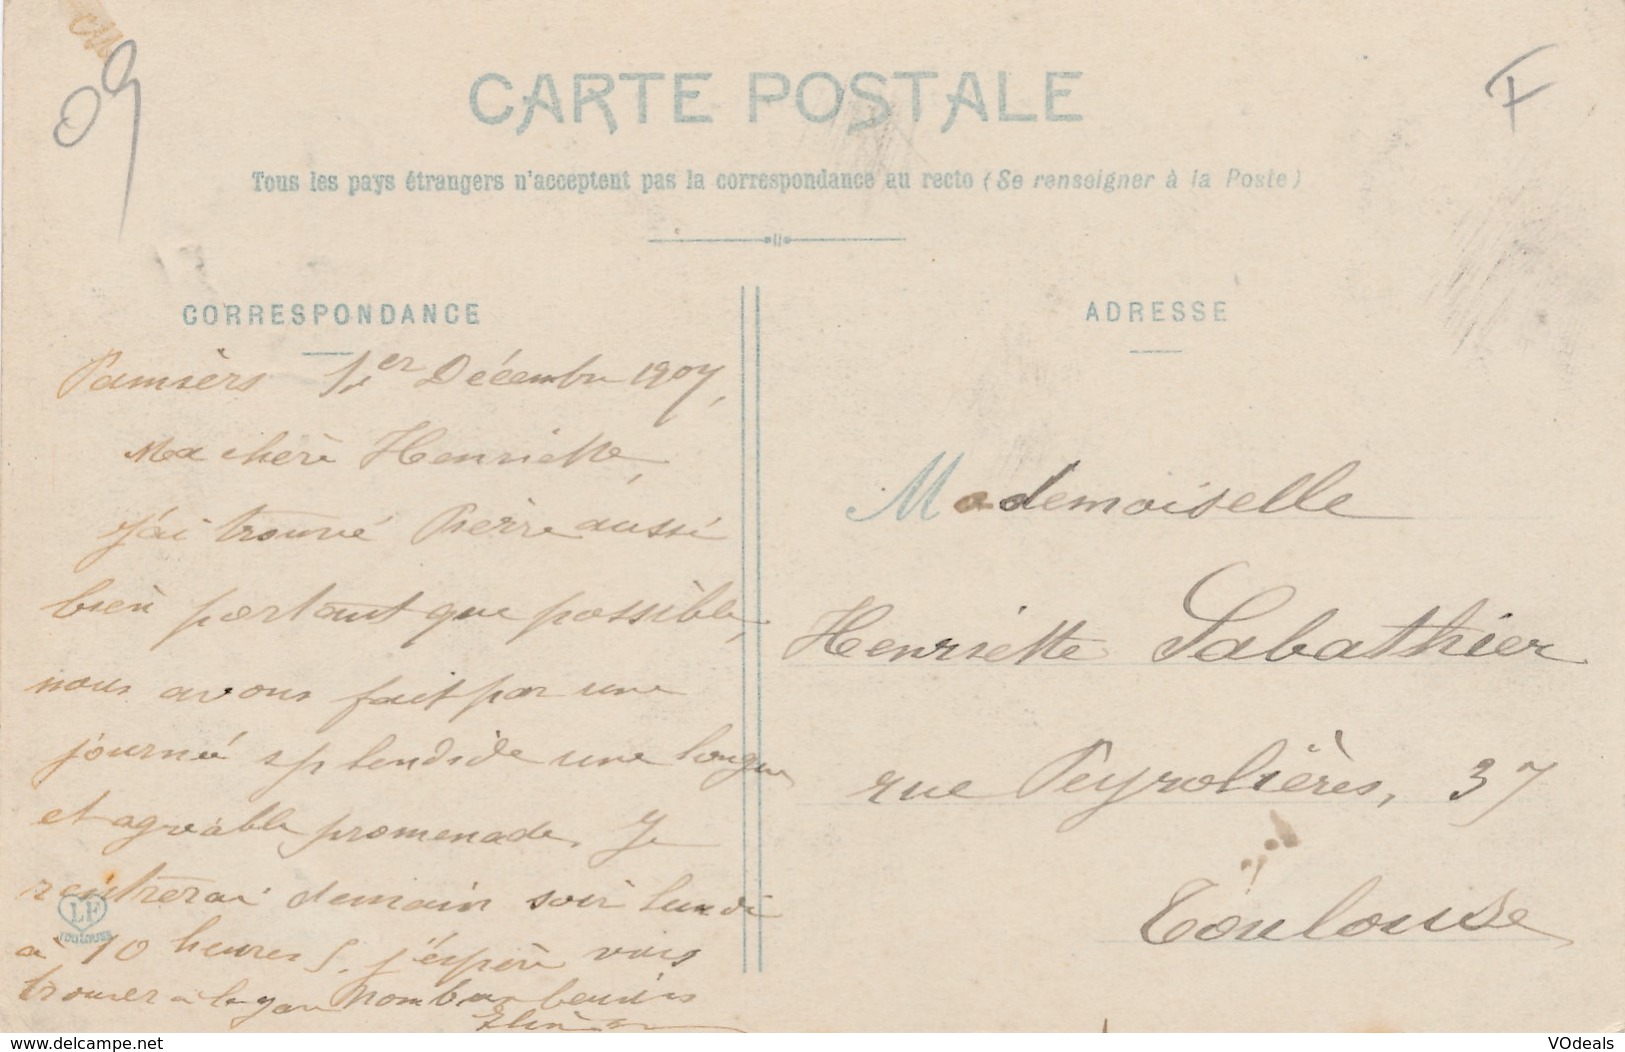 09
F
CARTE POSTALE
Tous les pays étrangers n'acceptent pas la correspondance au recto (Se renseigner à la Poste)
CORRESPONDANCE
Pamiers 1er Décembre 1907,
Ma chère Henriette,
J'ai trouvé Pierre aussi
bien portant que possible,
nous avons fait par une
journée splendide une longue
et agréable promenade. Je
rentrerai demain soir lundi
à 10 heures
j'espère vous
trouver à la gare Nombreux baisers
LF
TOULOUSE
ADRESSE
Mademoiselle
Henriette Sabathier
rue Peyrolières, 37
Toulouse
www.delcampe.net
VOdeals